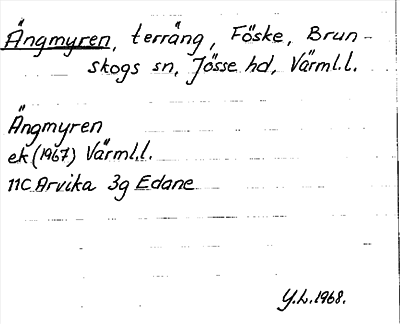 Ängmyren, terräng, Föske, Brun-
skogs sn, Jösse hd, Värml.l.
Ängmyren
ek (1967) Värml.l.
11C Arvika 3g Edane
Y.L. 1968.